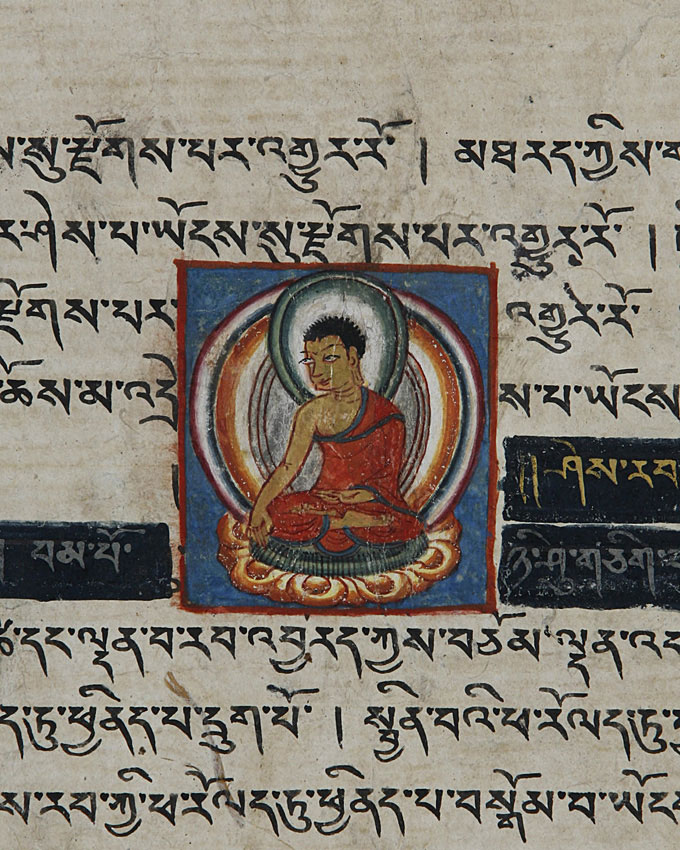 སུ་རྫོགས་པར་འགྱུར་རོ་ །  མཐར་ད་ཀྱིས་
ཤེས་པ་ཡོངས་སུ་རྫོགས་པར་འགྱུར་རོ་ །
རྫོགས་པར་ འགྱུར་རོ་
ཆོས་མ་ པ་ཡོངས་
།། ཤེས་རབ་
། བམ་པོ་ ཉི་ཤུ་གཅིག་
དང་ལྡན་བ་རབ་འབྱོརད་ཀྱིས་བཅོམ་ལྡན་
དུ་ཕྱིནད་པ་དྲུག་པོ་ ། སྦྱིན་བའི་ཕ་རོལད་ཏུ་
ས་རབ་ཀྱི་ཕ་རོལད་ཏུ་ཕྱིནད་པ་བསྒོམ་བ་ཡོངས་